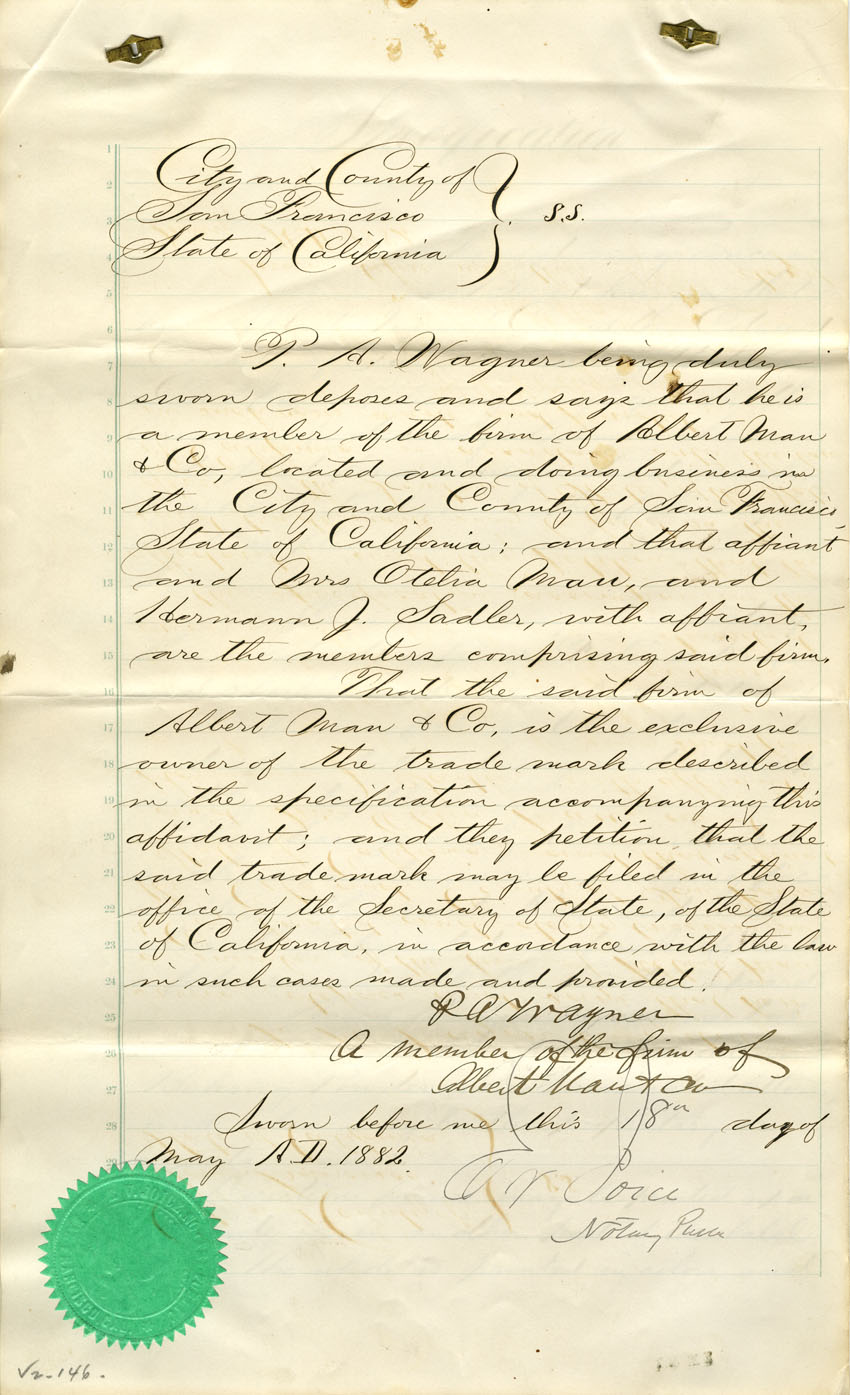 City and County of
San Francisco
State of California
} S.S.
P. A. Wagner being duly
sworn deposes and says that he is
a member of the firm of Albert Mau
& Co, located and doing business in
the City and County of San Francisco,
State of California; and that affiant
and Mrs Otelia Mau, and
Hermann J. Sadler, with affiant,
are the members comprising said firm.
That the said firm of
Albert Mau & Co, is the exclusive
owner of the trade mark described
in the specification accompanying this
affidavit; and they petition that the
said trade mark may be filed in the
office of the Secretary of State, of the State
of California, in accordance with the law
in such cases made and provided.
P A Wagner
A member of the firm of
Albert Mau & Co
Sworn before me this 18th day of
May A.D. 1882
Notary Public
1
2
3
4
6
7
8
9
10
11
12
13
14
15
16
17
18
19
20
21
22
23
24
25
26
27
28
29